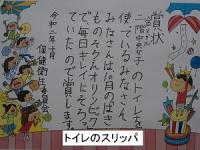 賞状
二階中央女子のトイレを
使っているみなさん
みなさんは10月のはき
ものそろえオリンピックで、
毎日キレイにそろっ
ていたので賞します。
令和二年十月
保健衛生委員会
トイレのスリッパ